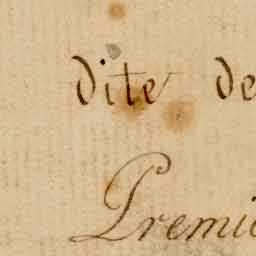 dite de
Premie